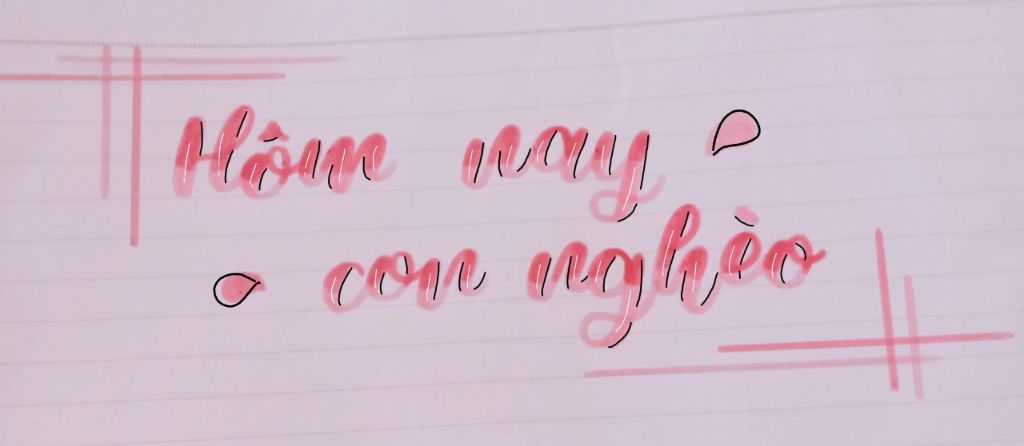 Hôm nay
con nghèo